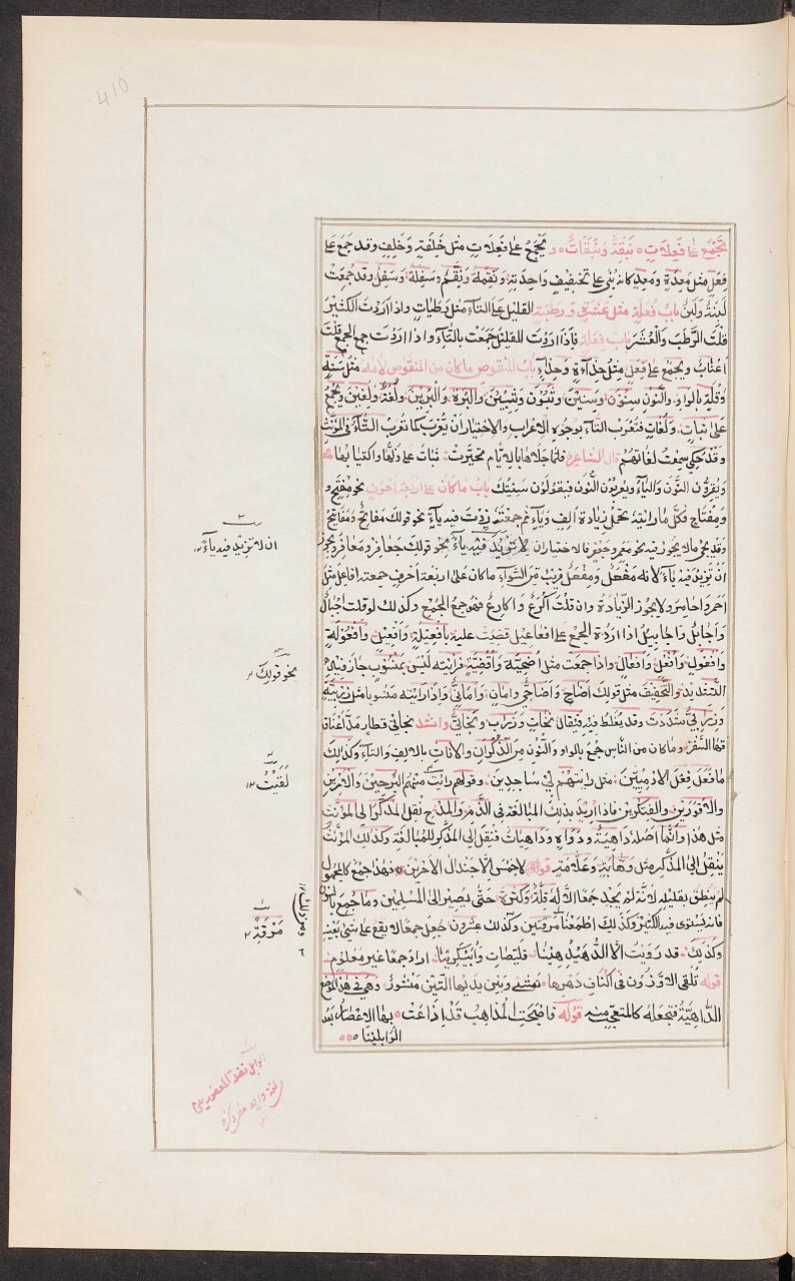 410
تجمع على فعلات نبقة ونبقات و يجمع على فعلات مثل خلفة وخلف وقد جمع على
فعل مثل معدة ومعد كانه بنى على تخفيف واحدته ونقمة ونقم وسفلة وسفل وقد جمعت
لبنة ولبن باب فعلة مثل عشرة ورطبة القليل على التاء مثل رطبات واذا اردت الكثير
قلت الرطب والعشر باب فعلة فاذا اردت القليل جمعت بالتاء واذا اردت جمع الجمع قلت
اعناب ويجمع على فعل مثل حداءة وحداء باب المنقوص ما كان من المنقوص لامه مثل سنة
وقلة بالواو والنون سنون وسنين وثبون وثبين والبرة والبرين ولغة ولغين ويجمع
على ثبات ولغات فتعرب التاء بوجوه الاعراب والاختيار ان تعرب كما تعرب التاء فى المؤنث
وقد حكى سمعت لغاتهم قال الشاعر فلما جلاها بالايام تحيرت ثبات على ذلها واكتيابها
ويقرون النون والياء ويعربون النون فيقولون سنينك باب ما كان على اربعة احرف نحو مفتح و
ومفتاح فكل ما رابته تحتمل زيادة الف وياء ثم جمعته زدت فيه ياء نحو قولك مفاتح ومفاتيح
وقد يجئ مالا يجوز فيه نحو معمر وجعفر فالاختيار ان لا تزيد فيه ياء نحو قولك جعافر ومعافر ويجوز
ان تزيد فيه ياء لانه مفعل ومفعل قريب من السواء ما كان على اربعة احرف جمعته افاعل مثل
احمر واحامر ولا يجوز الزيادة وان قلت اكرع واكارع فهو جمع الجمع وكذلك لو قلت اجبال
واجابل واجابيل اذا اردت الجمع على افاعيل قضيت عليه بافعيلة وافعيل وافعولة
وافعول وافعل وافعال واذا جمعت مثل اضحية واقفية فرايته ليس بمنسوب جاز فيه
التشديد والتخفيف مثل قولك اضاح واضاحى وامان وامانى واذا رايته منسوبا مثل زربية
وزرابى شددت وقد يغلط فيه فيقال نجات وزراب ونجاتى وانشد نجاتى قطار مد اعناقا
قتها السفر وما كان من الناس جمع بالواو والنون من الذكران والاناث بالالف والتاء وكذلك
ما فعل فعل الادميين مثل رايتهم لى ساجدين وقولهم رايت منهم البرحين والفتكرين
والاقورين والفتكرين فاذا اريد بذلك المبالغة فى الذم والمدح نقل المذكر الى المؤنث
مثل هذا وانما اصله داهية ودواه وداهيات فنقل الى المذكر للمبالغة وكذلك المؤنث
ينقل الى المذكر مثل وهابة وعلامة قوله لا خمس الا جندل الاحرين فهذا جمع كالمجهول
لم ينطق بقليله لانه لم يجد جمعا الا له قلة وكثرة حتى يصير الى المسلمين وما جمع بالنون
فانه يستوى فيه الكثير وكذلك اطعمنا مرقتين وكذلك عشرون جعل جمعا لا يقع على شئ بعينه
وكذلك قد رويت الا الدهيدهينا قليصات وابيكرينا اراد جمعا غير معلوم
قوله تلقى الاوزون فى اكناف دارتها تمشى وبين يديها التبن منثور وهى فى هذا الموضع
الداهية فتجعله كالمتعجب منه قوله فاصبحت المذاهب قد اذاعت بها الاعصار بعد
الوابلينا
ان لا تزيد فيه ياء
نحو قولك
لقيت
مرقة